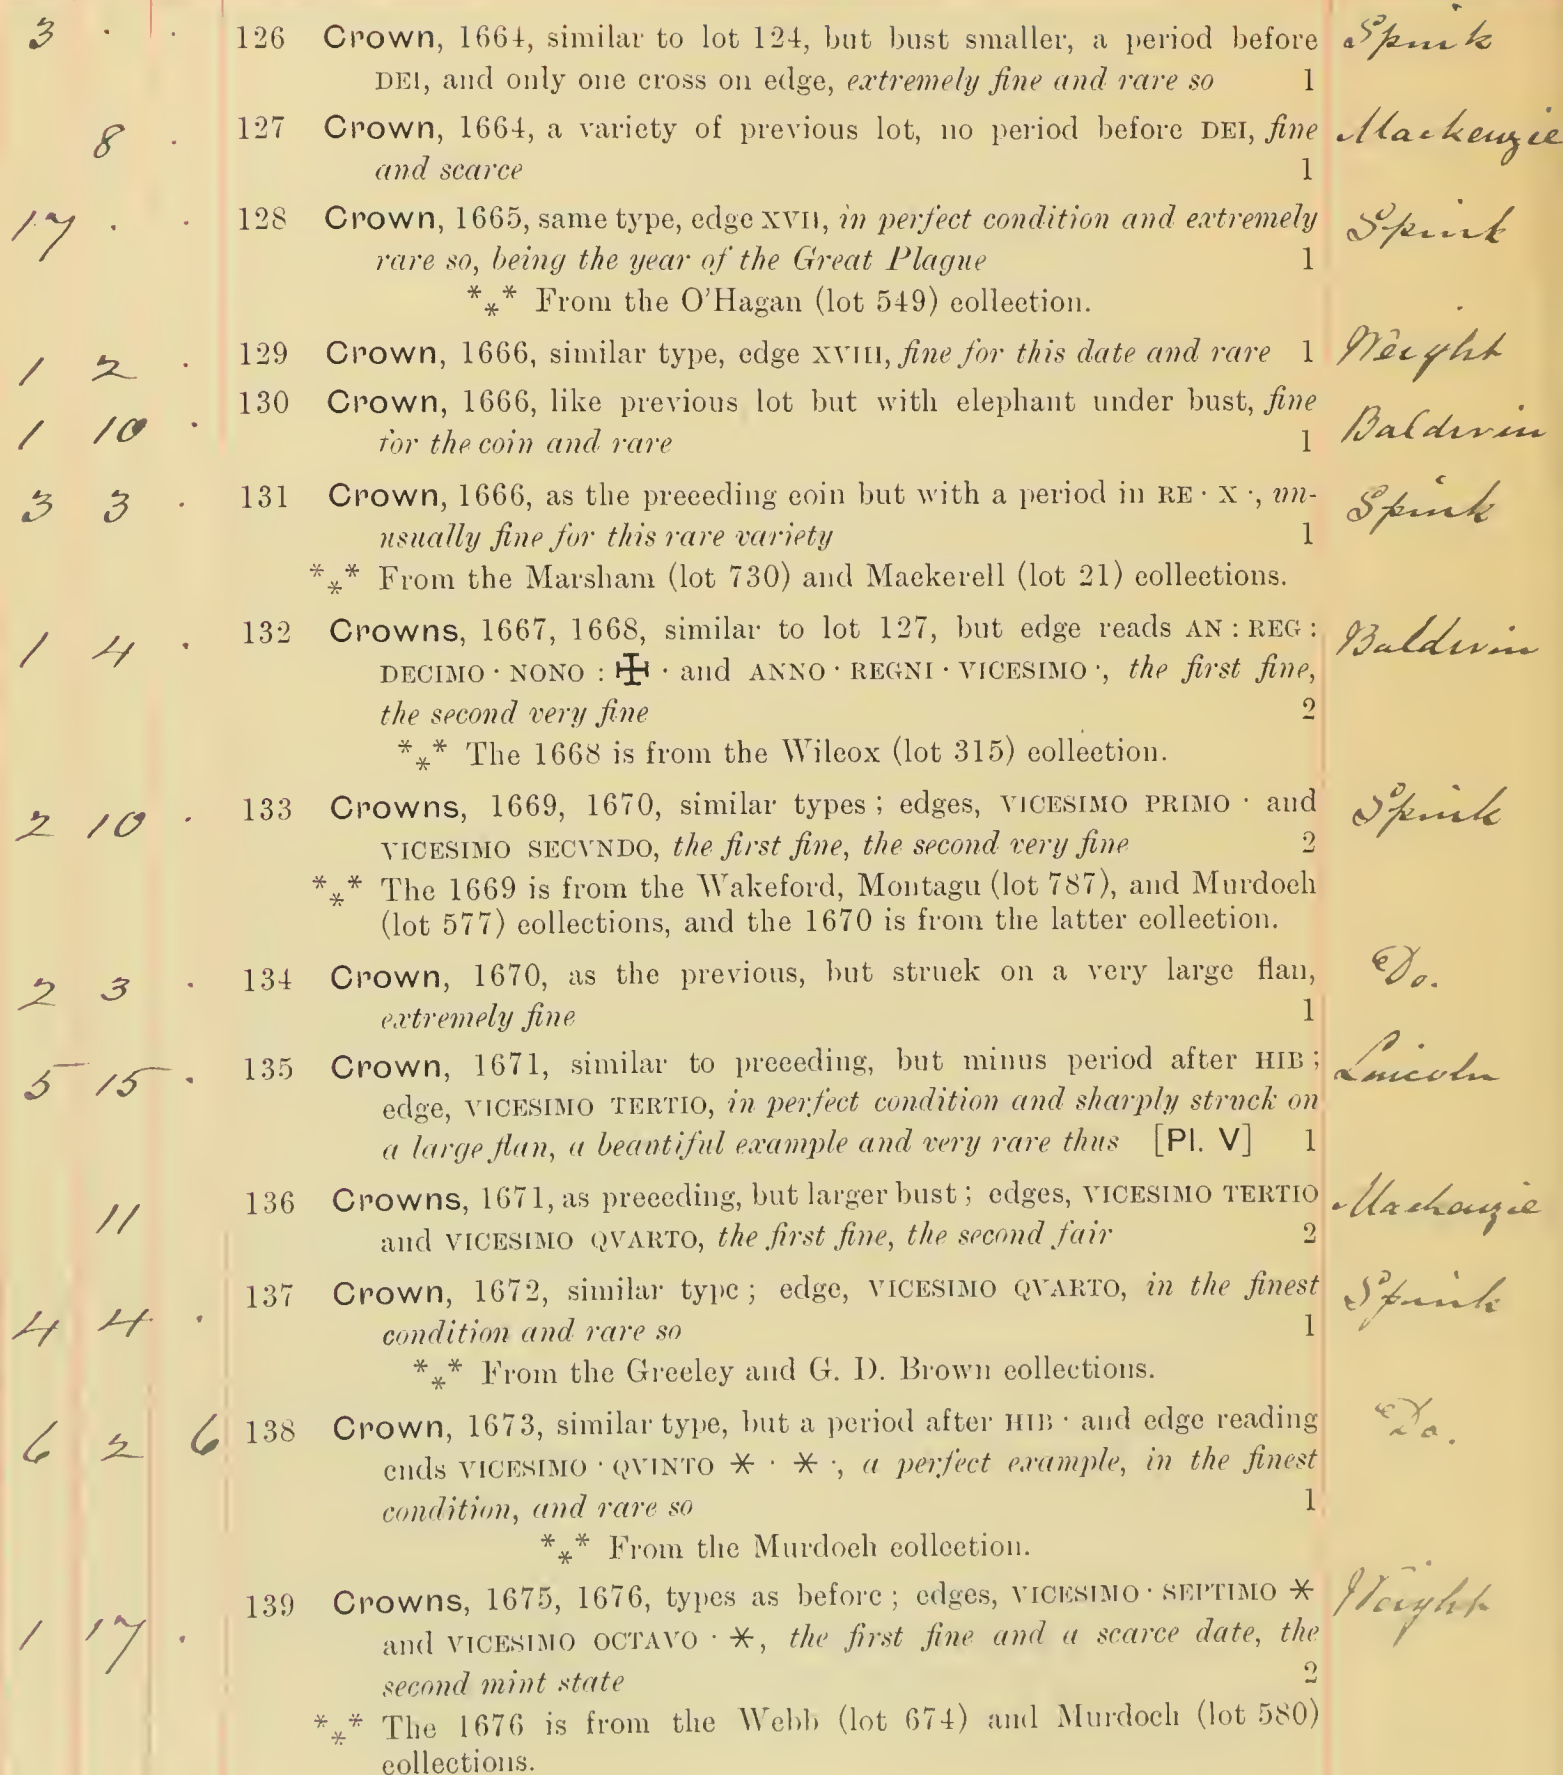 3 · · 126 Crown, 1664, similar to lot 124, but bust smaller, a period before Spink
DEI, and only one cross on edge, extremely fine and rare so 1
8 · 127 Crown, 1664, a variety of previous lot, no period before DEI, fine Mackenzie
and scarce 1
17 · · 128 Crown, 1665, same type, edge XVII, in perfect condition and extremely Spink
rare so, being the year of the Great Plague 1
*** From the O'Hagan (lot 549) collection.
1 2 · 129 Crown, 1666, similar type, edge XVIII, fine for this date and rare 1 Weight
1 10 · 130 Crown, 1666, like previous lot but with elephant under bust, fine Baldwin
for the coin and rare 1
3 3 · 131 Crown, 1666, as the preceding coin but with a period in RE · X ·, un- Spink
usually fine for this rare variety 1
*** From the Marsham (lot 730) and Mackerell (lot 21) collections.
1 4 · 132 Crowns, 1667, 1668, similar to lot 127, but edge reads AN : REG : Baldwin
DECIMO · NONO : ✠ · and ANNO · REGNI · VICESIMO ·, the first fine,
the second very fine 2
*** The 1668 is from the Wilcox (lot 315) collection.
2 10 · 133 Crowns, 1669, 1670, similar types ; edges, VICESIMO PRIMO · and Spink
VICESIMO SECVNDO, the first fine, the second very fine 2
*** The 1669 is from the Wakeford, Montagu (lot 787), and Murdoch
(lot 577) collections, and the 1670 is from the latter collection.
2 3 · 134 Crown, 1670, as the previous, but struck on a very large flan, Do.
extremely fine 1
5 15 · 135 Crown, 1671, similar to preceding, but minus period after HIB ; Lincoln
edge, VICESIMO TERTIO, in perfect condition and sharply struck on
a large flan, a beautiful example and very rare thus [Pl. V] 1
11 136 Crowns, 1671, as preceding, but larger bust ; edges, VICESIMO TERTIO Mackenzie
and VICESIMO QVARTO, the first fine, the second fair 2
4 4 · 137 Crown, 1672, similar type ; edge, VICESIMO QVARTO, in the finest Spink
condition and rare so 1
*** From the Greeley and G. D. Brown collections.
6 2 6 138 Crown, 1673, similar type, but a period after HIB · and edge reading Do.
ends VICESIMO · QVINTO * · * ·, a perfect example, in the finest
condition, and rare so 1
*** From the Murdoch collection.
1 17 · 139 Crowns, 1675, 1676, types as before ; edges, VICESIMO · SEPTIMO * Weight
and VICESIMO OCTAVO · *, the first fine and a scarce date, the
second mint state 2
*** The 1676 is from the Webb (lot 674) and Murdoch (lot 580)
collections.